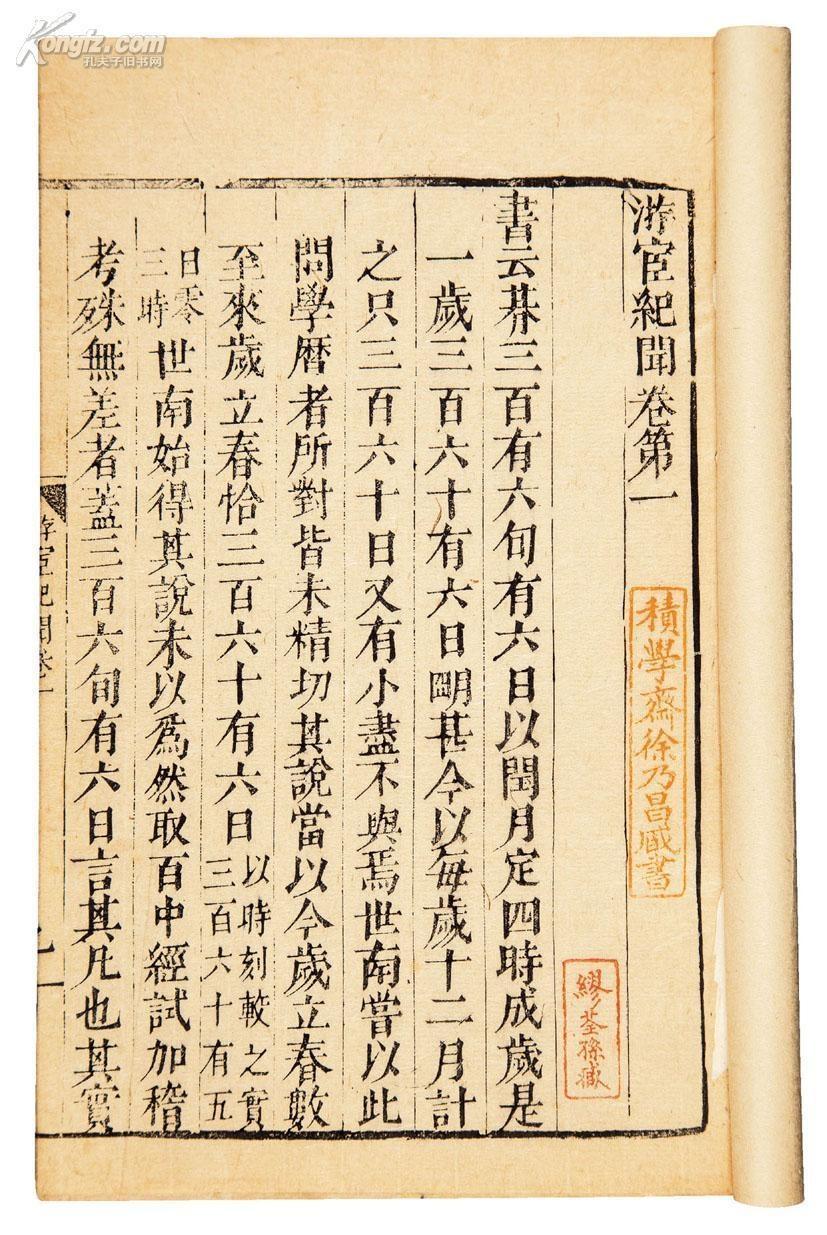 Kongfz.com
孔夫子旧书网
游宦紀聞卷第一
積學齋徐乃昌臧書
繆荃孫臧
書云朞三百有六旬有六日以閏月定四時成歲是
一歲三百六十有六日眀甚今以每歲十二月計
之只三百六十日又有小盡不與焉世南嘗以此
問學曆者所對皆未精切其說當以今歲立春數
至來歲立春恰三百六十有六日以時刻較之實三百六十有五
日零三時世南始得其說未以爲然取百中經試加稽
考殊無差者蓋三百六旬有六日言其凡也其實
游宦紀聞卷一